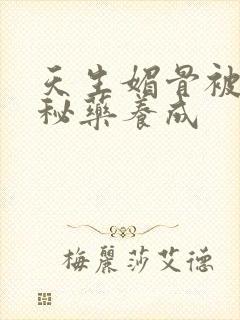 天生媚骨被
秘藥養成
梅麗莎艾德